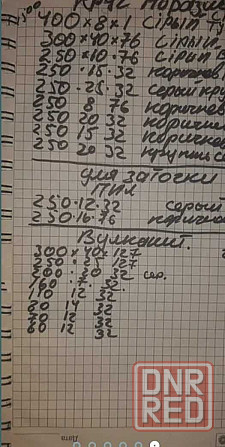 Круг Нородизи
400×8×1 сірый
300×40×76 сірый
250×10·76 сірый В
250·15·32 коричнев
250·25·32 серый кру
250 8 76 коричнев
250 20 32 коричне
250 15 32 коричне
250 20 32 крупный
для заточки
пил
250·12·32 серый
250·16·76 коричне
Вулканит.
300×40×127
250·25·127
200·20·32 сер.
160·7·32
110 12 32
80 14 32
80 12 32
60 12 32
DNR
RED
Дата